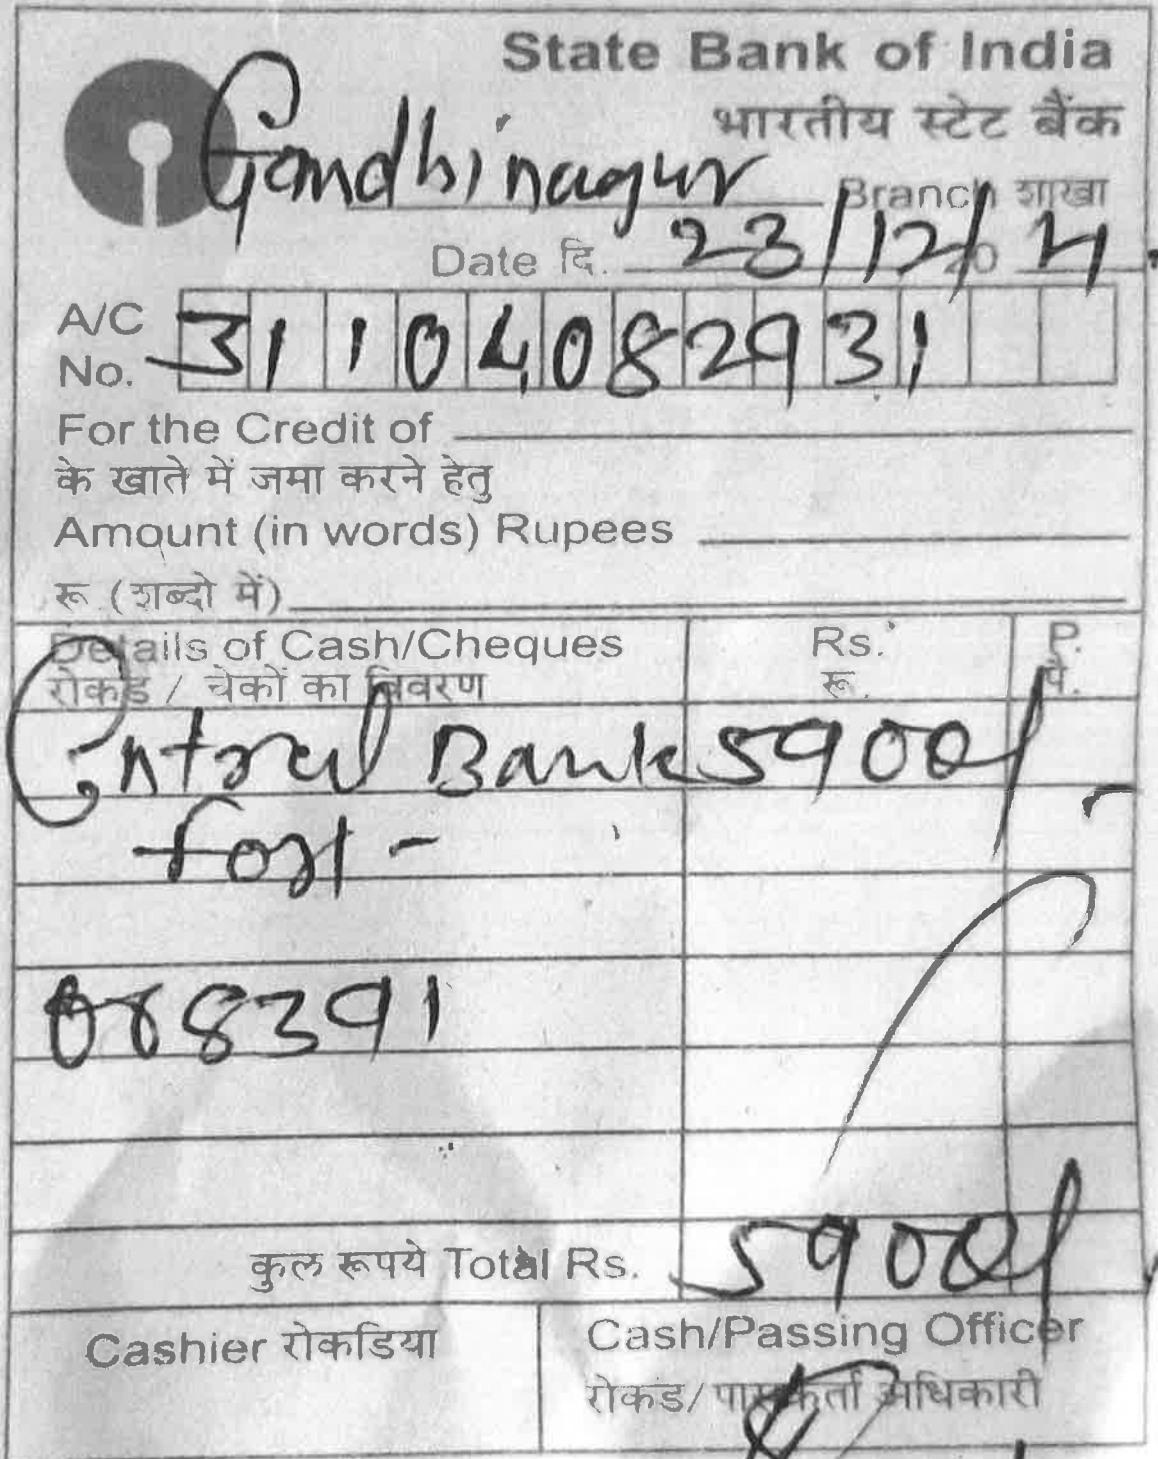 State Bank of India
भारतीय स्टेट बैंक
Gandhinagar Branch शाखा
Date दि. 23/12/20 14
A/C No. 31104082931
For the Credit of
के खाते में जमा करने हेतु
Amount (in words) Rupees
रू. (शब्दो में)
Details of Cash/Cheques Rs. P.
रोकड / चेकों का विवरण रू. पै.
Central Bank 5900/-
088391
कुल रूपये Total Rs. 5900/
Cashier रोकडिया Cash/Passing Officer
रोकड/पासकर्ता अधिकारी